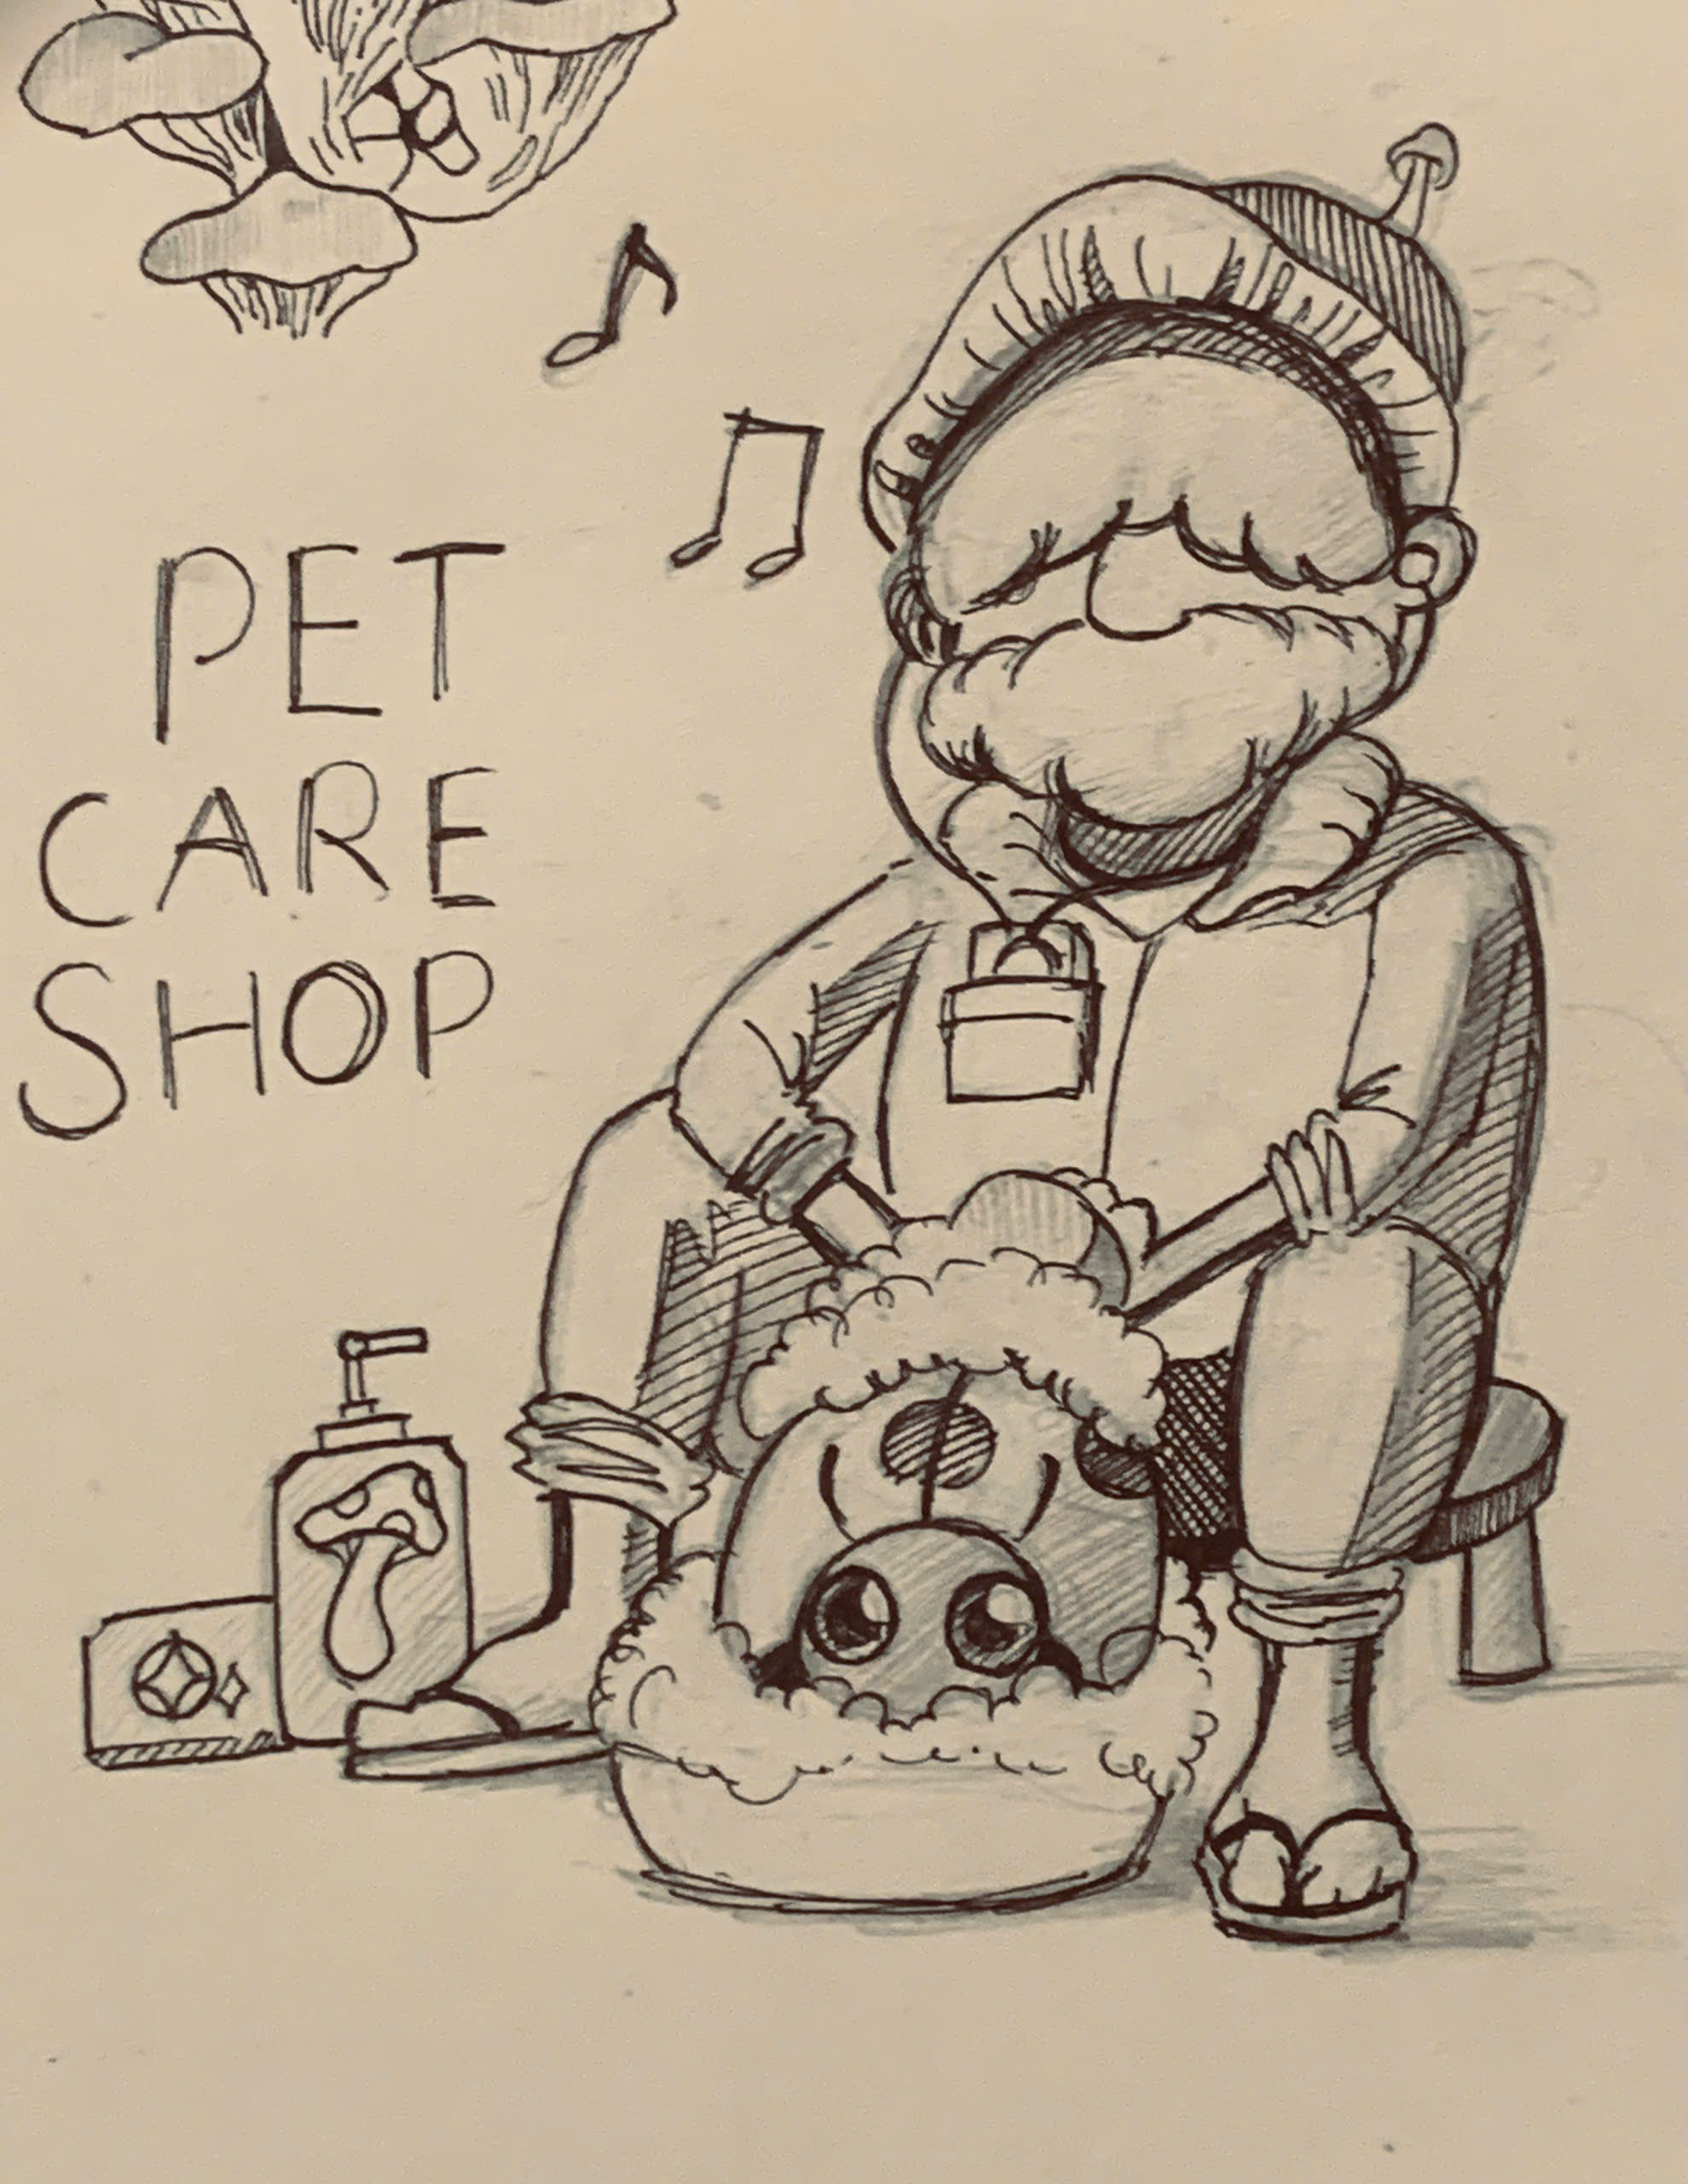 PET
CARE
SHOP